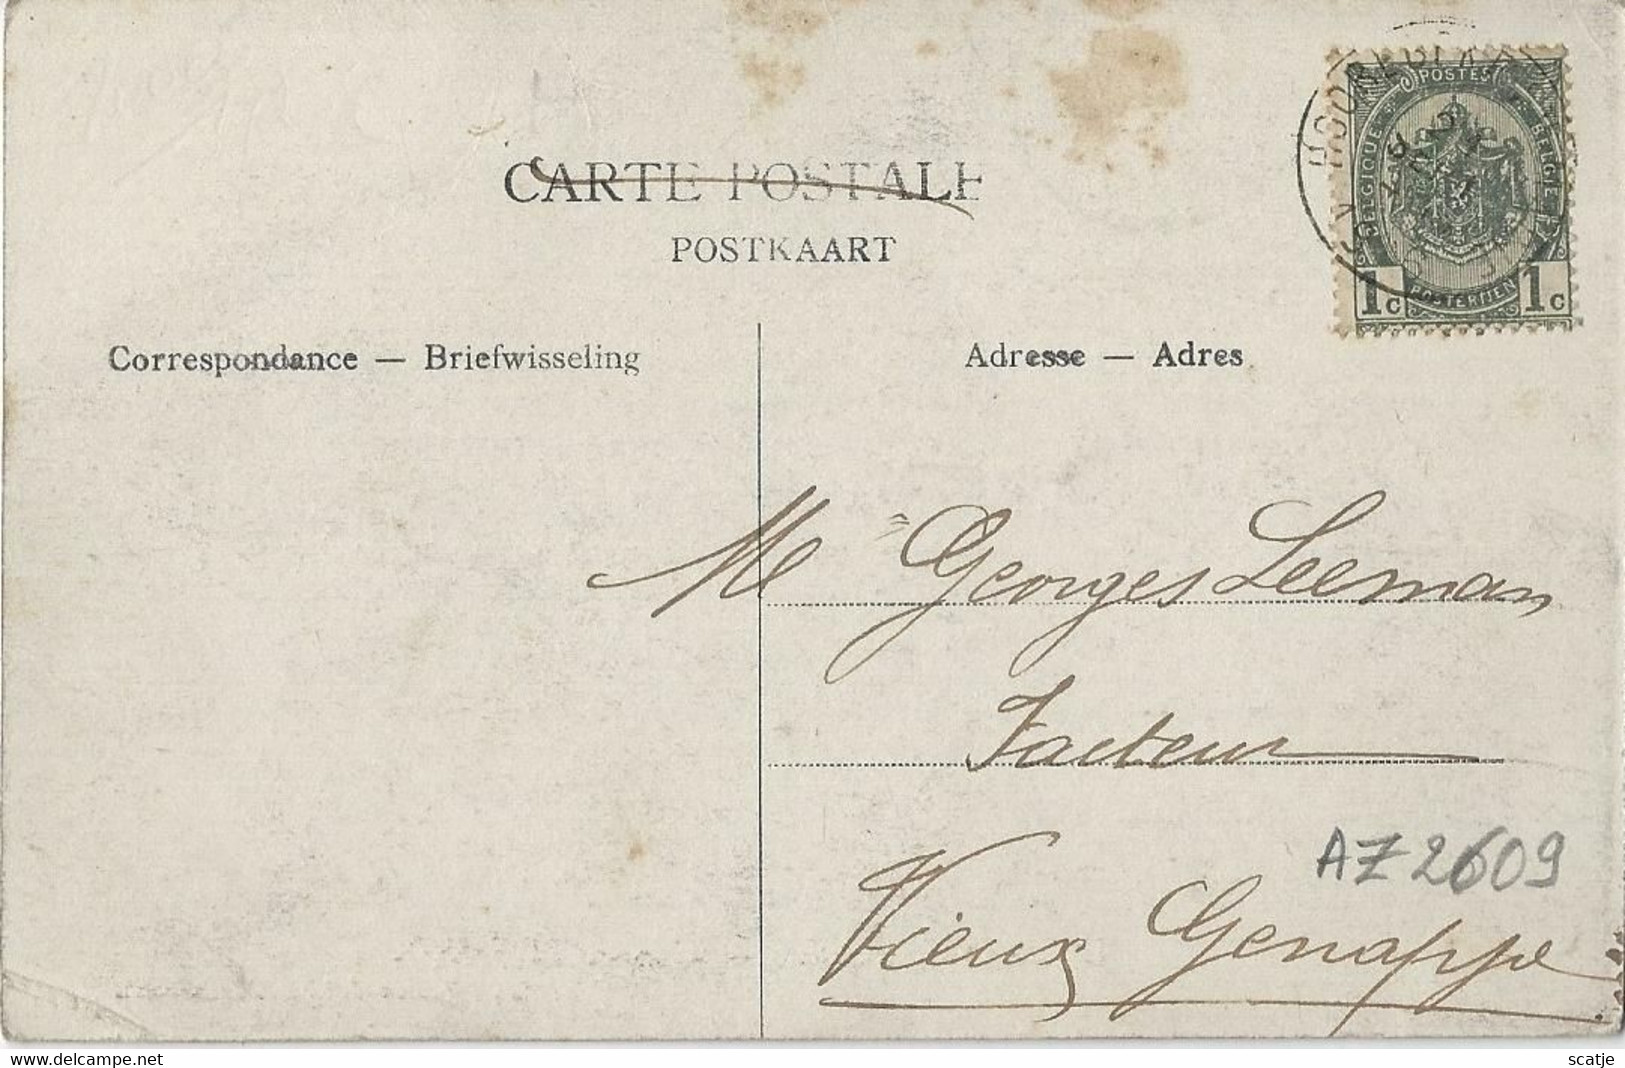 CARTE POSTALE
POSTKAART
Correspondance — Briefwisseling
Adresse — Adres
POSTES
BELGIQUE
BELGIË
1c POSTERIJEN 1c
M Georges Leeman
Facteur
AZ2609
Vieux Genappe
delcampe.net
scatje